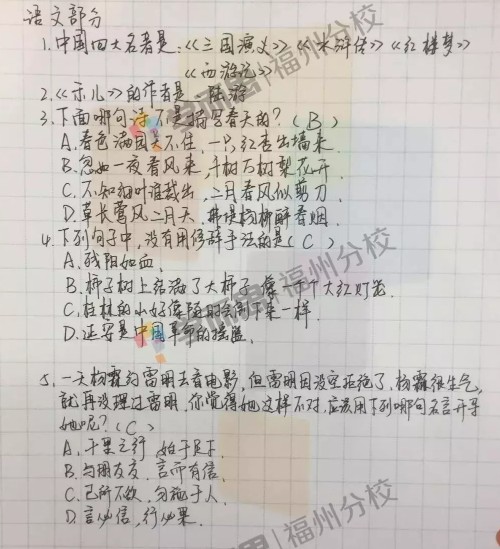 语文部分
1.中国四大名著是:《三国演义》《水浒传》《红楼梦》
《西游记》
2.《示儿》的作者是 陆游
3.下面哪句诗不是描写春天的?(B)
A.春色满园关不住,一只红杏出墙来.
B.忽如一夜春风来,千树万树梨花开.
C.不知细叶谁裁出,二月春风似剪刀.
D.草长莺飞二月天,拂堤杨柳醉春烟.
4.下列句子中,没有用修辞手法的是(C)
A.残阳如血.
B.柿子树上结满了大柿子像一千个大红灯笼.
C.桂林的山好像随时会倒下来一样.
D.延安是中国革命的摇篮.
5.一天杨霖约雷明去看电影,但雷明因没空拒绝了,杨霖很生气,
就再没理过雷明.你觉得她这样不对,应该用下列哪句名言开导
她呢?(C)
A.千里之行,始于足下.
B.与朋友交,言而有信.
C.己所不欲,勿施于人.
D.言必信,行必果.
学而思|福州分校
学而思|福州分校
学而思|福州分校